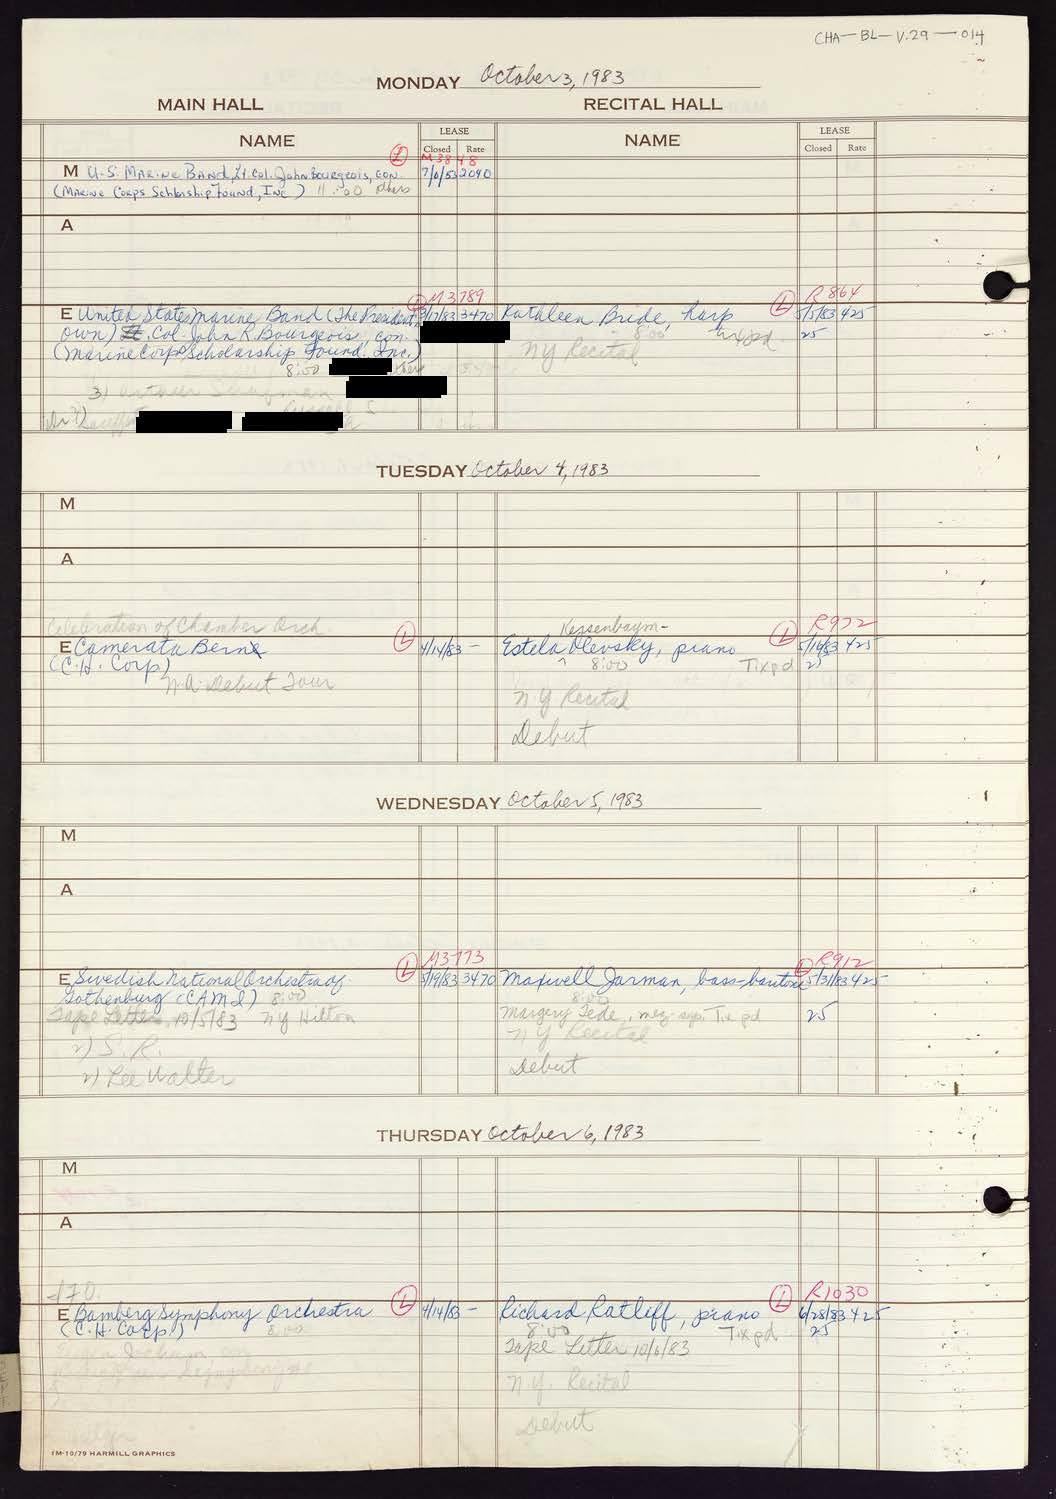 CHA-BL-V.29-014
MONDAY October 3, 1983
MAIN HALL RECITAL HALL
NAME LEASE NAME LEASE
Closed Rate Closed Rate
L M3848
M U.S. Marine Band, Lt. Col. John Bourgeois, con. 2090
(Marine Corps Schlorship Found, Inc) 11:00
A
L M3789 L R864
E United States Marine Band (The President's 3470 Kathleen Bride, harp 5/5/83 425
own) Lt. Col. John R. Bourgeois, con. 8:00 tix pd 25
(Marine Corps Scholarship Found. Inc.) NY Recital
8:00
3)
TUESDAY October 4, 1983
M
A
Celebration of Chamber Orch. Kersenbaym- R972
E Camerata Bern L 4/14/83 - Estela Olevsky, piano L 425
(C.H. Corp) ^ 8:00 Tix pd 25
N.A. Debut Tour
N Y Recital
Debut
WEDNESDAY October 5, 1983
M
A
L M3773 L R912
E Swedish National Orchestra of 5/19/83 3470 Maxwell Jarman, bass-baritone 5/31/83 425
Gothenburg (CAMI) 8:00 8:00
Tape Letter 10/5/83 NY Hilton Margery Tede, mez-sop. Tix pd 25
2) S.R. N Y Recital
2) Lee Walter Debut
THURSDAY October 6, 1983
M
A
L L R1030
E Bamberg Symphony Orchestra 4/14/83 - Richard Ratliff, piano 6/28/83 425
(C.H. Corp.) 8:00 8:00 Tix pd 25
Eugen Jochum con Tape Letter 10/6/83
N.Y. Recital
Debut
1M-10/79 HARMILL GRAPHICS